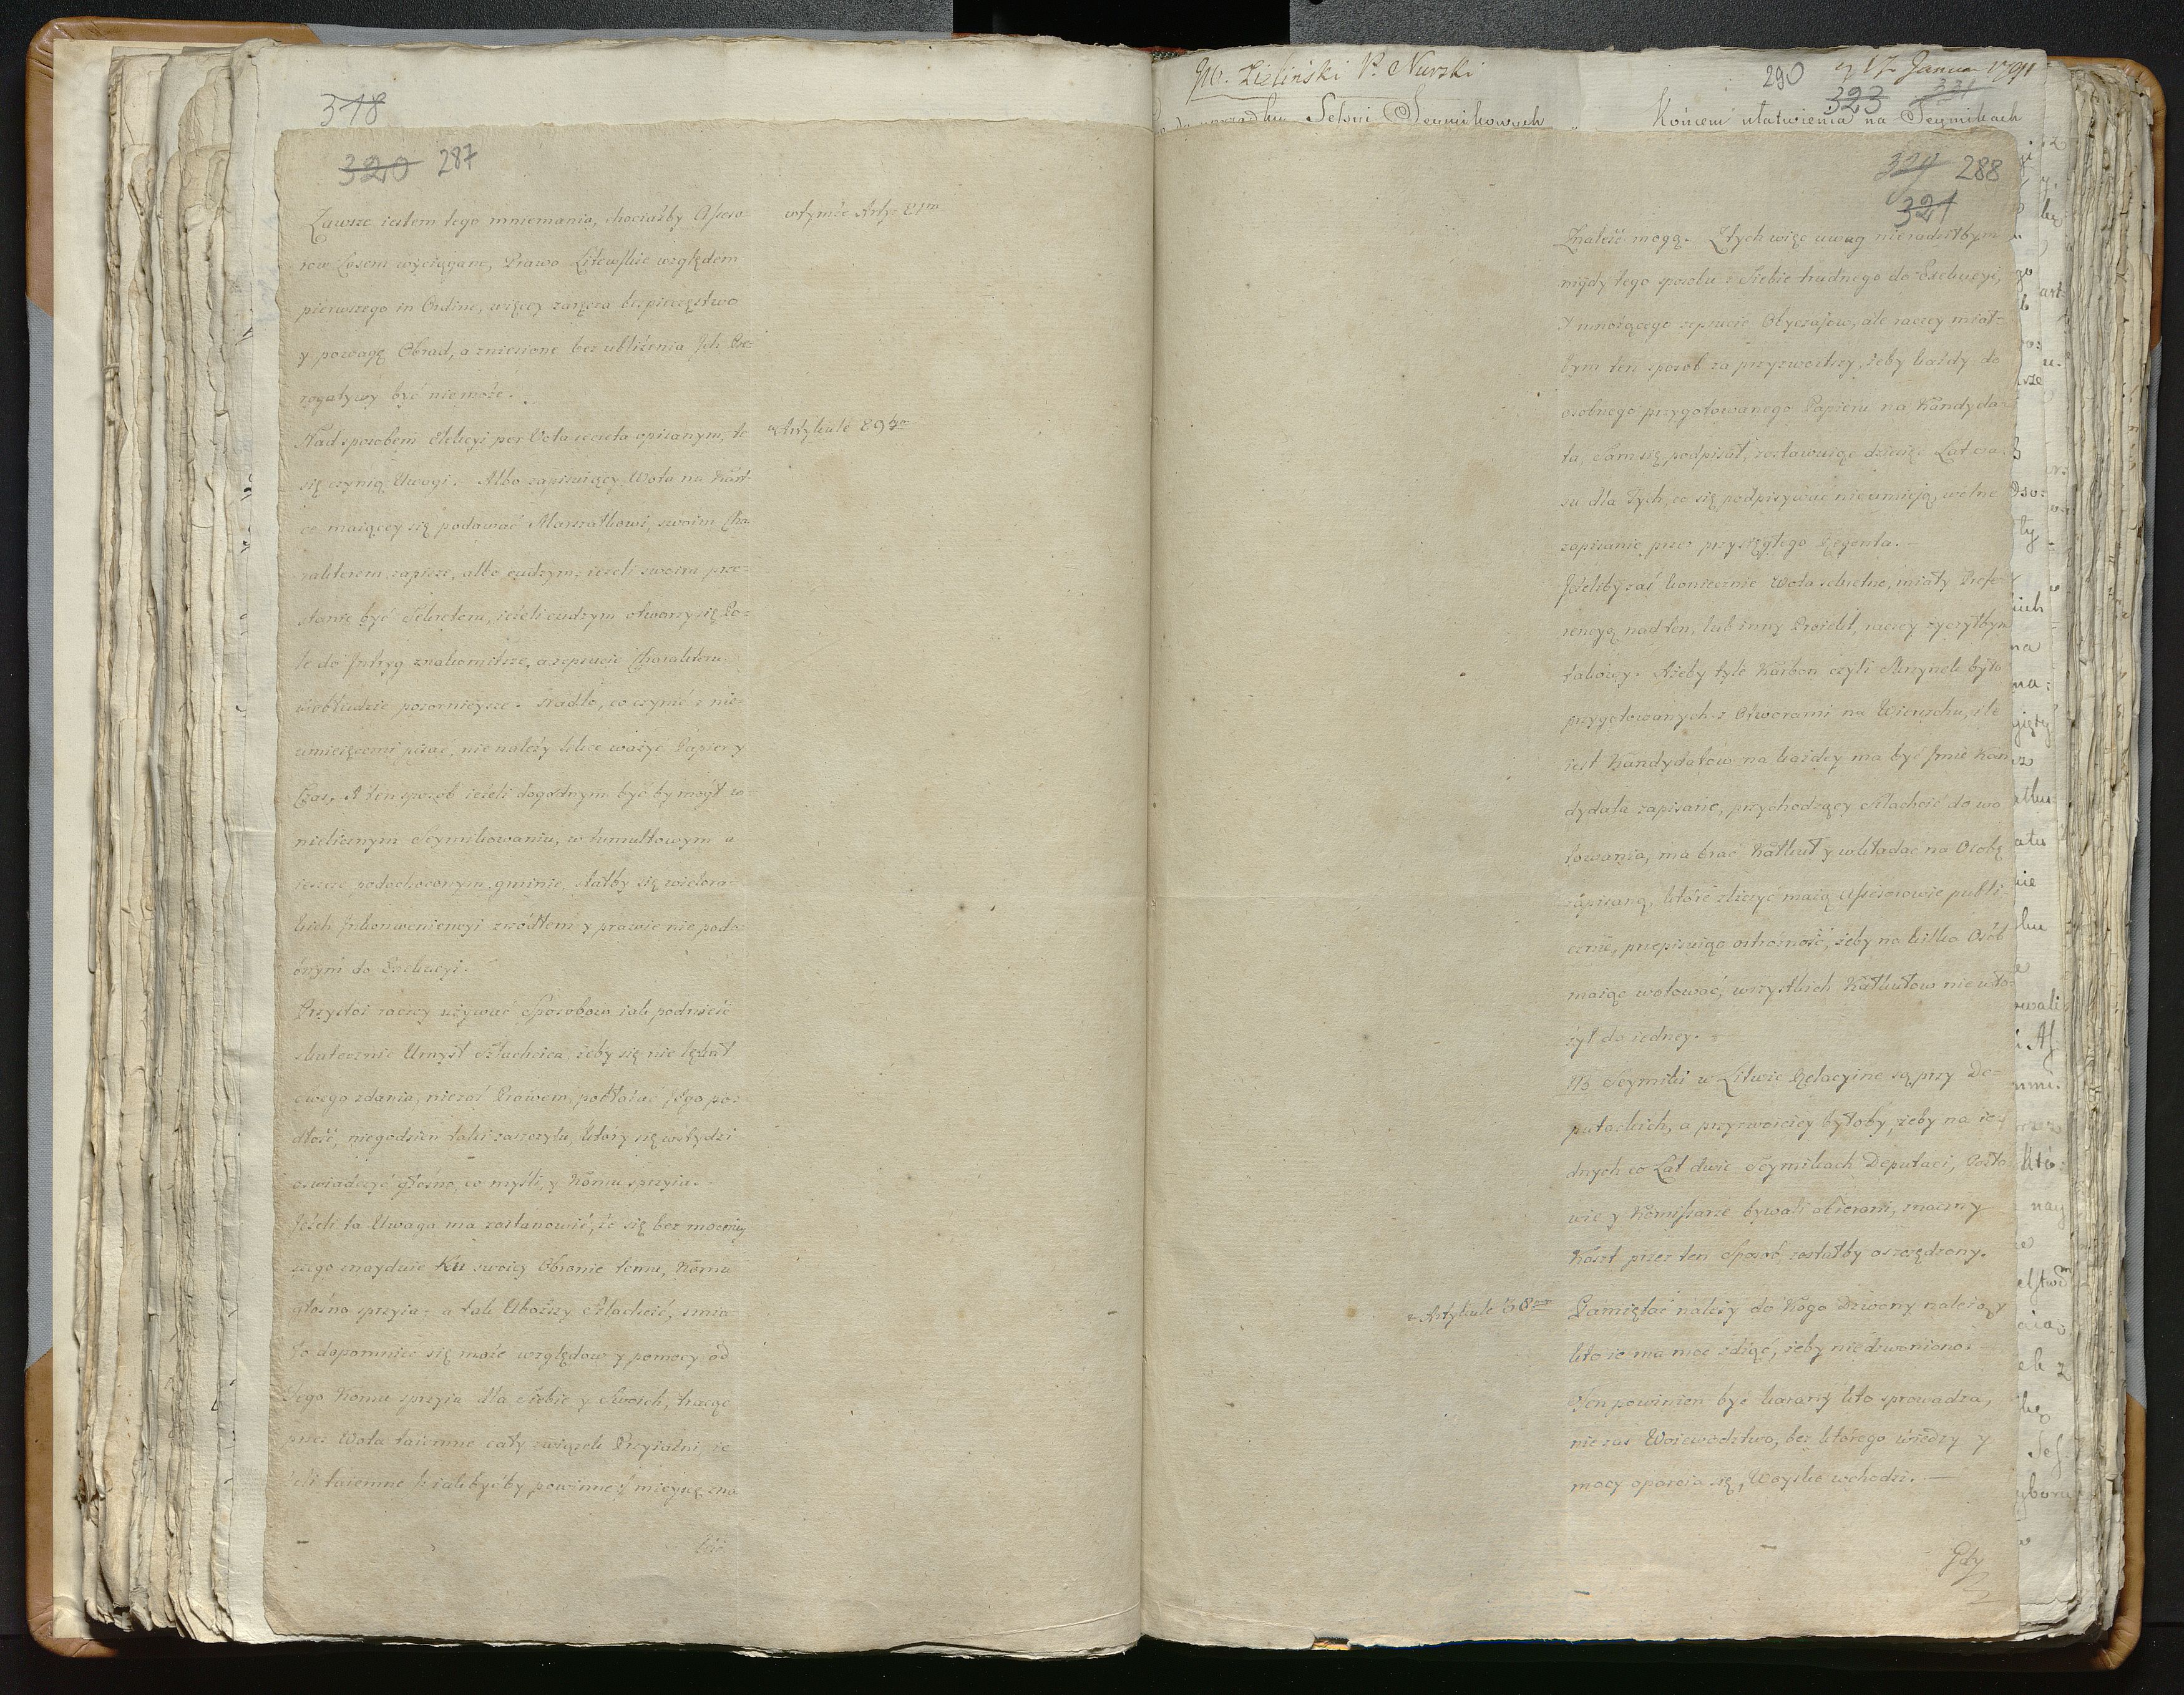 318
320 287
Zawsze iestem tego mniemania, chociażby Assesso=
row Losem wyciągane, Prawo Litewskie względem
pierwszego in Ordine, więcey zaręcza bespieczęstwo
y powagę Obrad, a zniesione bez ubliżenia Jch Pre=
rogatywy być niemoże.
Nad sposobem Elekcyi per Vota secreta opisanym, te
się czynią Uwagi. Albo zapisuiący Wota na Kart=
ce maiącey się podawać Marszałkowi, swoim Cha=
rakterem zapisze, albo cudzym, ieżeli swoim prze=
stanie być Sekretem, ieżeli cudzym otworzy się Po=
le do Jntryg znakomitsze, a zepsucie Charakteru
w obłudzie pozornieysze. Nadto, co czynić z nie=
umieiącemi pisać, nie należy lekce ważyć Papier y
Czas. A ten sposob ieżeli dogodnym być by mogł w
nielicznym Seymikowaniu, w tumultowym a
ieszcze podochoconym gminie, stałby się wielora=
kich Jnkonweniencyi zrzódłem y prawie nie podo=
bnym do Exekucyi.
Przystoi raczey używać Sposobow iak podnieść
skutecznie Umysł Szlachcica, żeby się nie lękał
swego zdania, niezaś Prawem, pokłaść Jego po=
dłość, niegodzien taki zaszczytu, który się wstydzi
oswiadczyć głośno, co myśli, y Komu sprzyia.
Jeżeli ta Uwaga ma zastanowić, że się bez mocniey
szego znayduie Ku swoiey Obronie temu, Komu
głośno sprzyia: a tak Uboższy Szlachcic, smia=
ło dopomnieć się może względow y pomocy od
tego Komu sprzyia dla siebie y Swoich, tracąc
przez Wota taiemne cały związek Przyiaźni, ie
żeli taiemne iakby być by powinney mieysce zna
leść
wtymże Arty: 21mo
w Artykule 29tm
JW. Zieliński P. Nurski
290 d 17 Janua 1791
323 321
do porządku Sessyi Seymikowych
Końcem ułatwienia na Seymikach
321 288
321
Znaleść mogą. Z tych więc uwag nieradziłbym
nigdy tego sposobu z Siebie trudnego do Exekucyi,
y mnożącego zepsucie Obyczajow, ale raczey miał=
bym ten sposob za przyzwoitszy, żeby każdy do
osobnego przygotowanego Papieru na Kandyda=
ta, Sam się podpisał, zostawuiąc dziesięć Lat cza=
su dla tych, co się podpisywać nieumieją, wolne
zapisanie przez przysięgłego Regenta.
Jeżeliby zaś koniecznie Wota sekretne, miały Prefe=
rencyą nad ten, lub inny Proiekt, raczey życzyłbym
takowy. Ażeby tyle Karbon czyli Skrzynek było
przygotowanych z Otworami na Wierzchu, ile
iest Kandydatow na każdey ma być Jmie Kan
dydata zapisane, przychodzący Szlachcic do wo
towania, ma brać Kałkuł y wkładać na Osobę
zapisaną, które zliczyć maią Assessorowie publi
cznie, przepisuiąc ostrożność, żeby na kilka Osób
maiąc wotować, wszystkich Kałkułow nie wło=
żył do iedney.
NB Seymiki w Litwie Relacyine są przy De=
putackich, a przyzwoiciey byłoby, żeby na ie=
dnych co Lat dwie Seymikach Deputaci, Posło
wie y Komissarze bywali obierani, znaczny
Koszt przez ten Sposob zostałby oszczędzony.
z Artykułu 38m
Pamiętać należy do Kogo Dzwony należą y
kto ie ma moc zdiąć, żeby niedzwoniono.
Ten powinien być karany kto sprowadza,
nie zaś Woiewodztwo, bez którego wiedzy y
mocy oparcia się, Woysko wchodzi.
Gdy